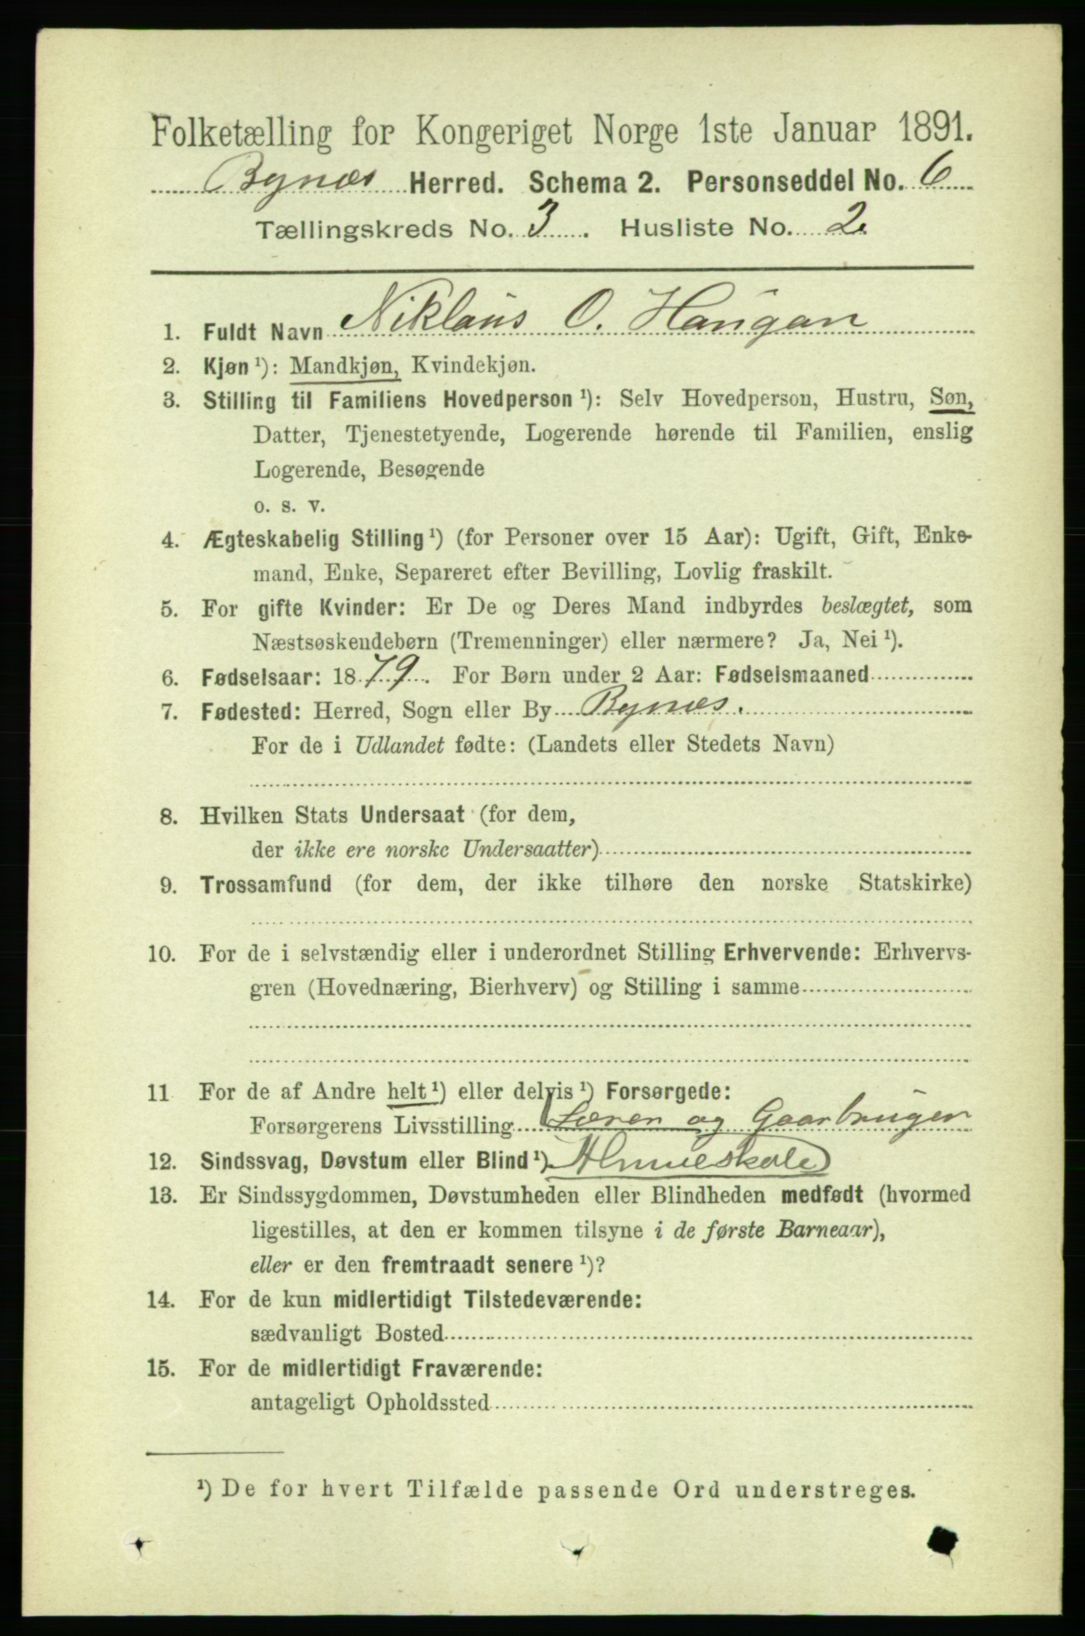 Folketælling for Kongeriget Norge 1ste Januar 1891.
Bynæs Herred. Schema 2. Personseddel No. 6
Tællingskreds No. 3. Husliste No. 2.
1. Fuldt Navn Niklaus O. Haugan
2. Kjøn ¹): Mandkjøn, Kvindekjøn.
3. Stilling til Familiens Hovedperson ¹): Selv Hovedperson, Hustru, Søn,
Datter, Tjenestetyende, Logerende hørende til Familien, enslig
Logerende, Besøgende
o. s. v.
4. Ægteskabelig Stilling ¹) (for Personer over 15 Aar): Ugift, Gift, Enke-
mand, Enke, Separeret efter Bevilling, Lovlig fraskilt.
5. For gifte Kvinder: Er De og Deres Mand indbyrdes beslægtet, som
Næstsøskendebørn (Tremenninger) eller nærmere? Ja, Nei ¹).
6. Fødselsaar: 1879. For Børn under 2 Aar: Fødselsmaaned
7. Fødested: Herred, Sogn eller By Bynæs.
For de i Udlandet fødte: (Landets eller Stedets Navn)
8. Hvilken Stats Undersaat (for dem,
der ikke ere norske Undersaatter)
9. Trossamfund (for dem, der ikke tilhøre den norske Statskirke)
10. For de i selvstændig eller i underordnet Stilling Erhvervende: Erhvervs-
gren (Hovednæring, Bierhverv) og Stilling i samme
11 For de af Andre helt ¹) eller delvis ¹) Forsørgede:
Forsørgerens Livsstilling Lærer og Gaarbruger
12. Sindssvag, Døvstum eller Blind ¹). Almueskole)
13. Er Sindssygdommen, Døvstumheden eller Blindheden medfødt (hvormed
ligestilles, at den er kommen tilsyne i de første Barneaar),
eller er den fremtraadt senere ¹)?
14. For de kun midlertidigt Tilstedeværende:
sædvanligt Bosted
15. For de midlertidigt Fraværende:
antageligt Opholdssted
¹) De for hvert Tilfælde passende Ord understreges.